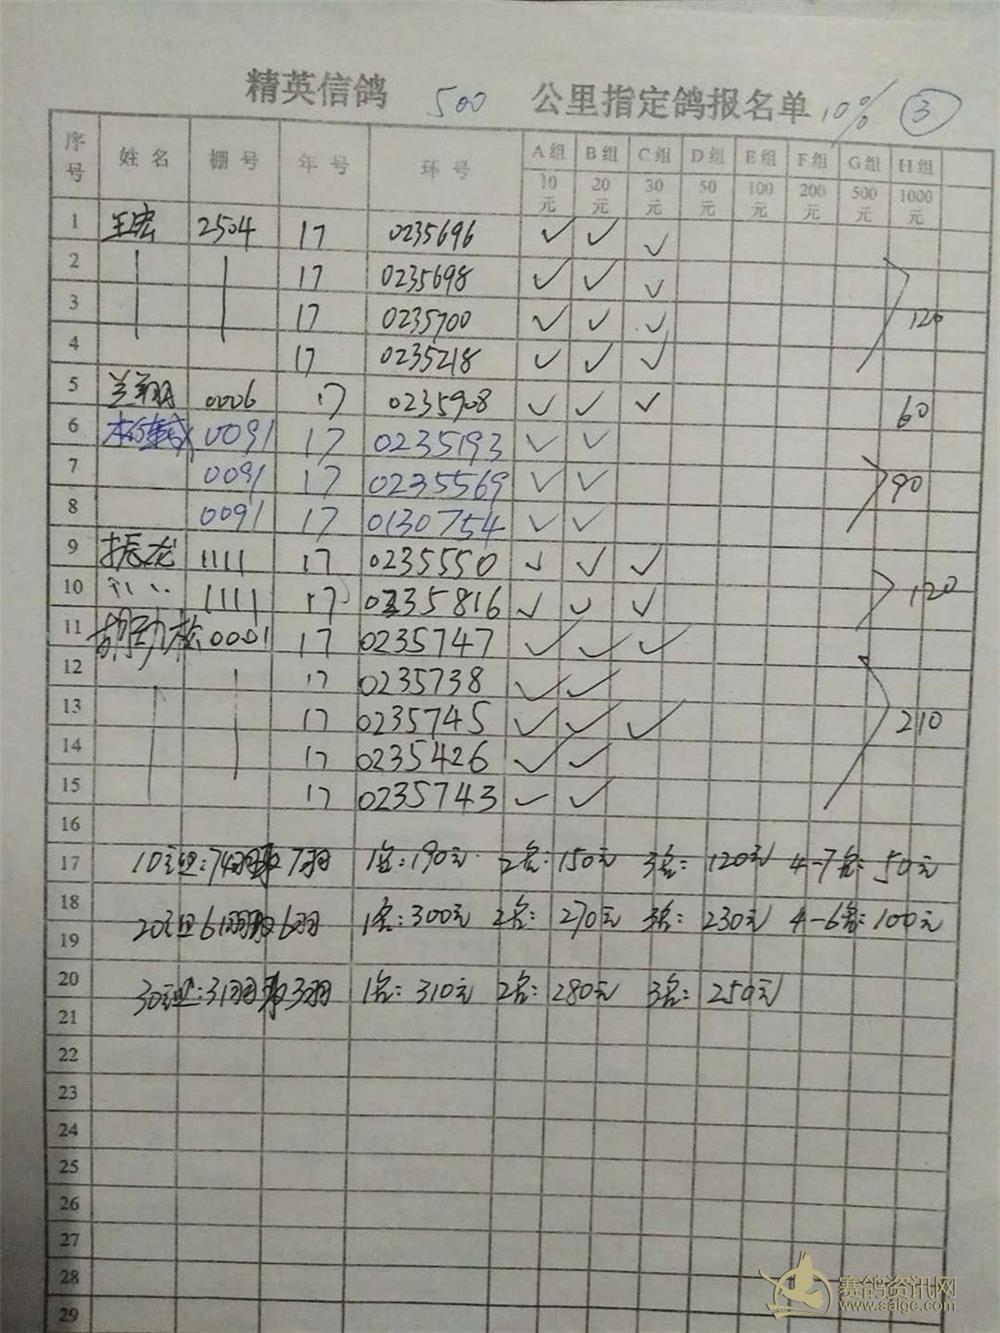 精英信鸽 500 公里指定鸽报名单 10% ③
序号 姓名 棚号 年号 环号 A组 B组 C组 D组 E组 F组 G组 H组
10元 20元 30元 50元 100元 200元 500元 1000元
1 王宏 2504 17 0235696 ✓ ✓ ✓
2 17 0235698 ✓ ✓ ✓
3 17 0235700 ✓ ✓ ✓ 120
4 17 0235218 ✓ ✓ ✓
5 兰翔 0006 17 0235908 ✓ ✓ ✓ 60
6 0091 17 0235193 ✓ ✓
7 0091 17 0235569 ✓ ✓ 90
8 0091 17 0130754 ✓ ✓
9 振龙 1111 17 0235550 ✓ ✓ ✓
10 1111 17 0235816 ✓ ✓ ✓ 120
11 胡劲松 0001 17 0235747 ✓ ✓ ✓
12 17 0235738 ✓ ✓
13 17 0235745 ✓ ✓ ✓ 210
14 17 0235426 ✓ ✓
15 17 0235743 ✓ ✓
16
17 10元组:74羽取7羽 1名:190元 2名:150元 3名:120元 4-7名:50元
18
19 20元组61羽取6羽 1名:300元 2名:270元 3名:230元 4-6名:100元
20 30元组:31羽取3羽 1名:310元 2名:280元 3名:250元
21
22
23
24
25
26
27
28
29
赛鸽资讯网
www.saigc.com